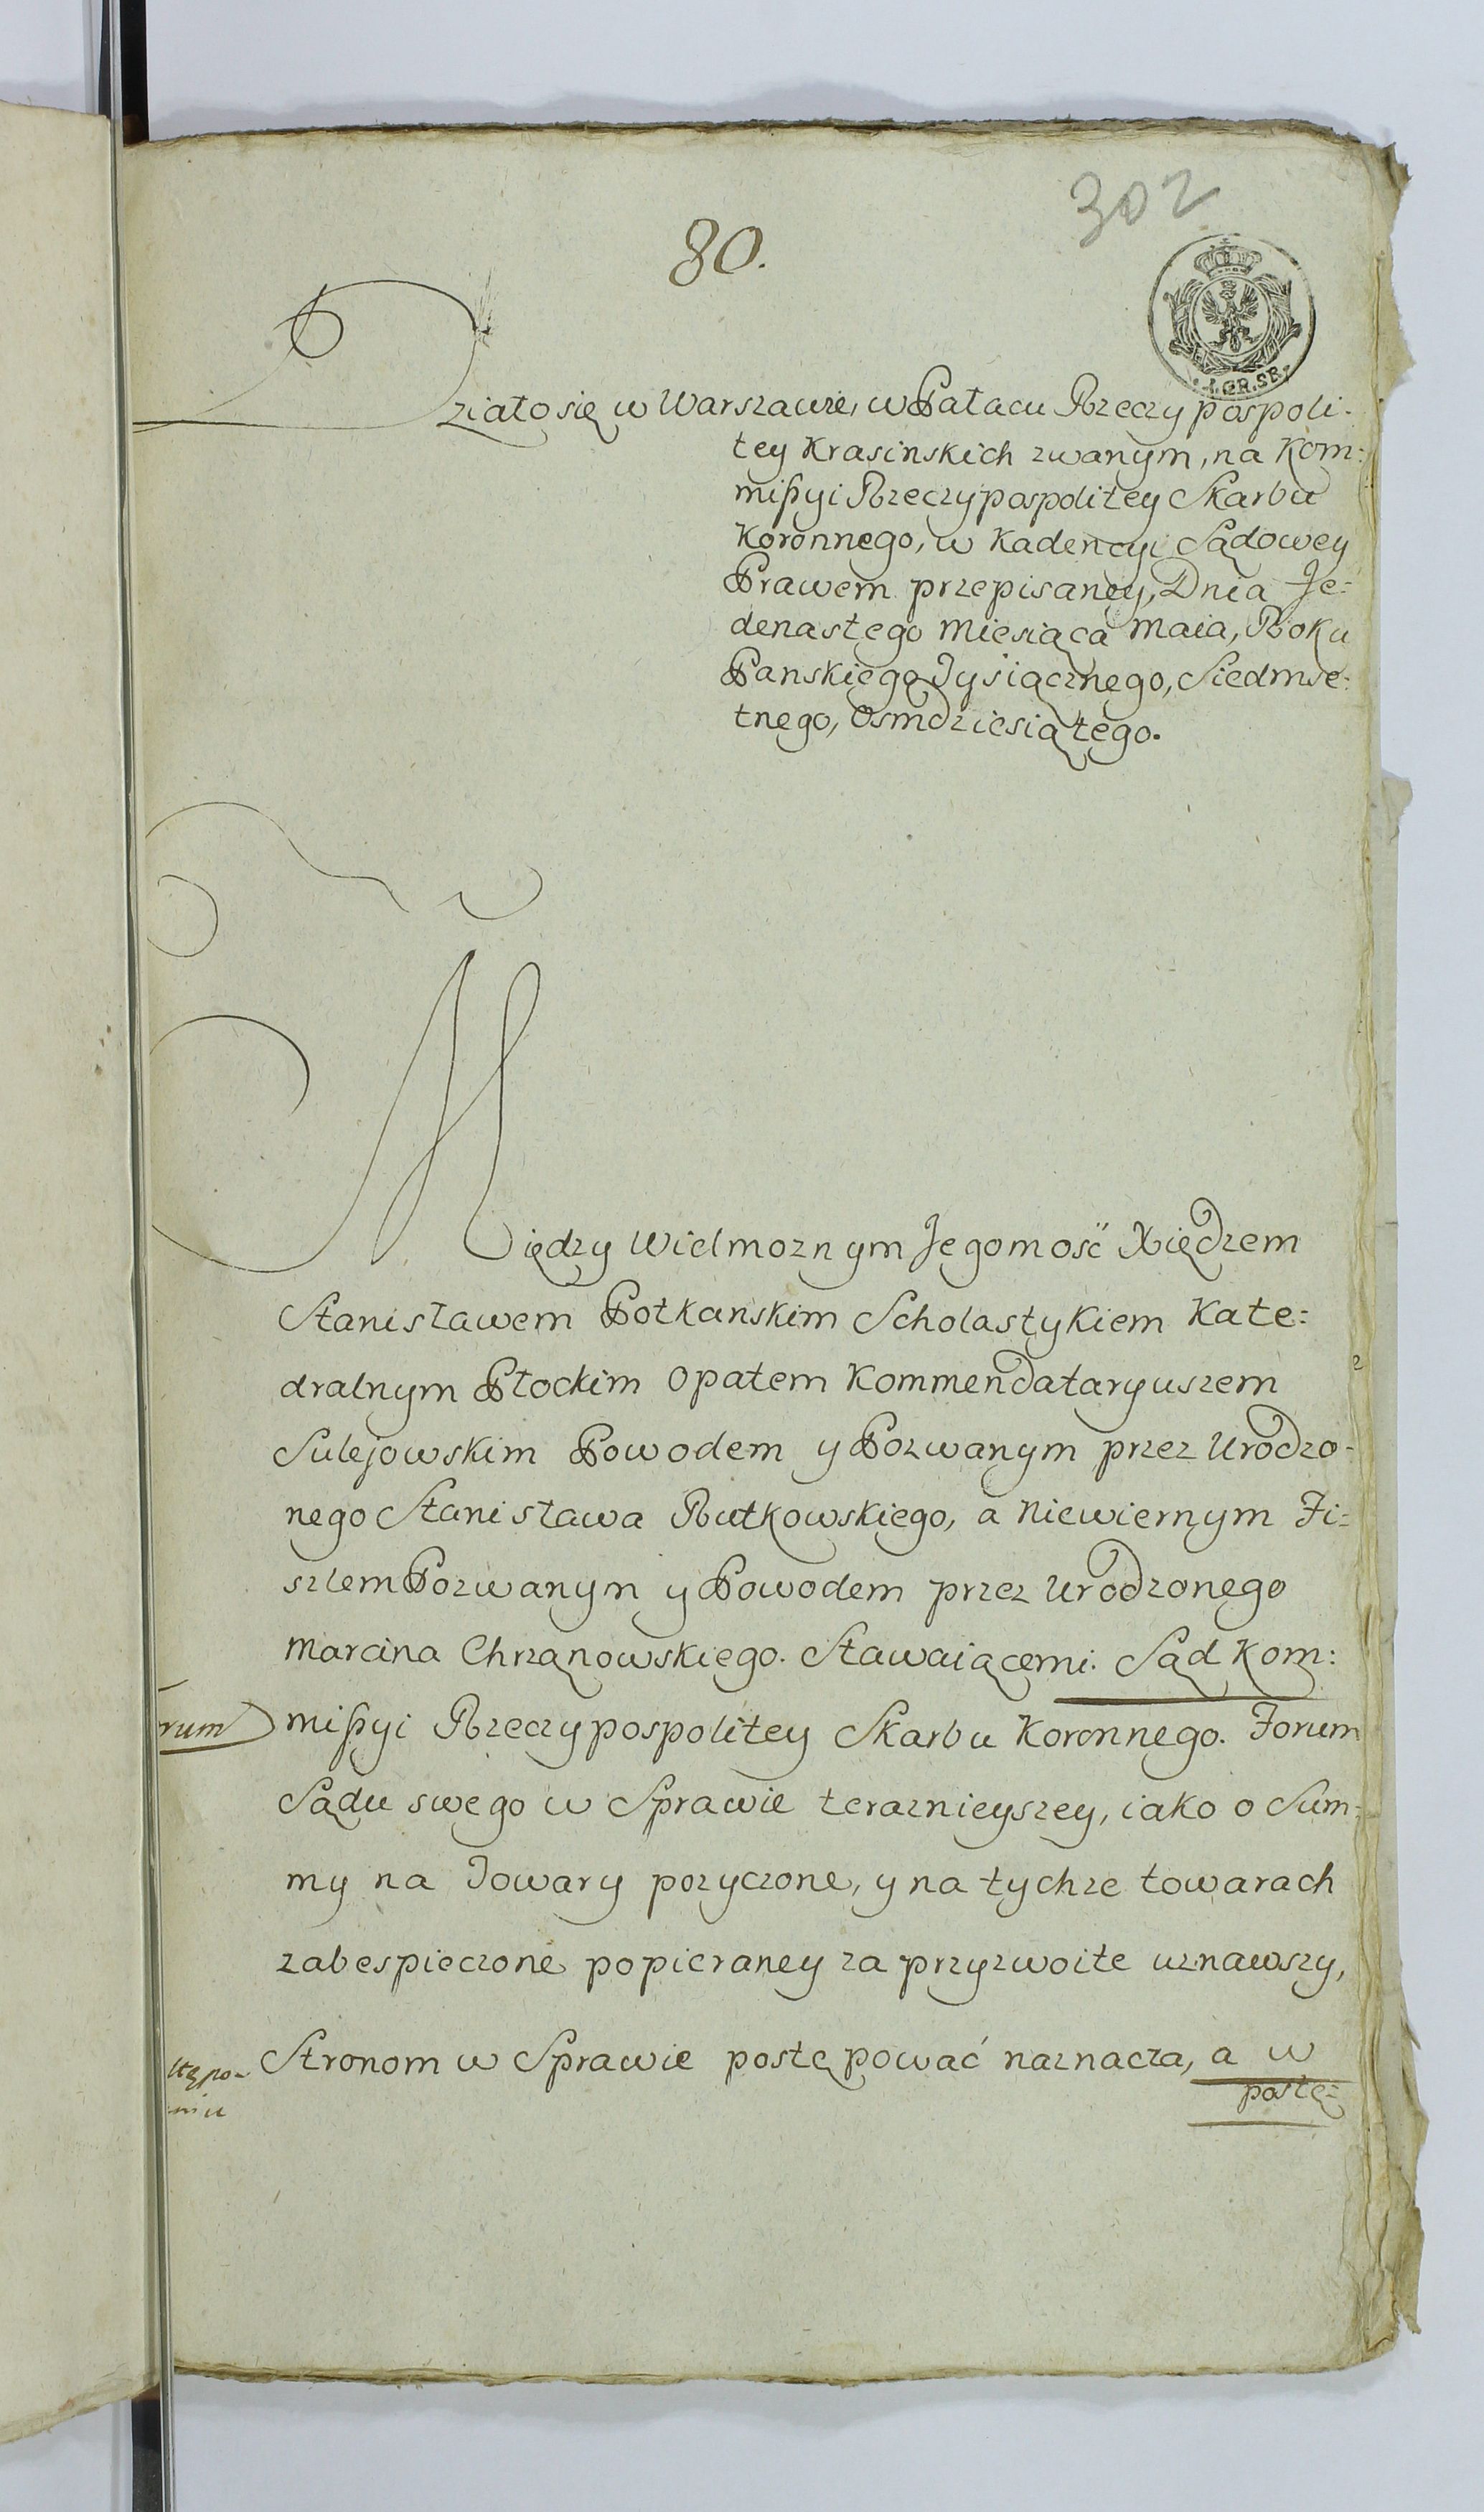 302
80.
4.GR.SR.
Działo się w Warszawie, w Pałacu Rzeczypospoli-
tey Krasinskich zwanym, na Kom:
mißyi Rzeczypospolitey Skarbu
Koronnego, w Kadencyi Sądowey
Prawem przepisaney, Dnia Je=
denastego Miesiąca Maia, Roku
Panskiego Tysiącznego, Siedmse=
tnego, Osmdziesiątego.
Między Wielmoznym Jegomość Xiędzem
Stanisławem Potkanskim Scholastykiem Kate=
dralnym Płockim Opatem Kommendataryuszem
Sulejowskim Powodem y Pozwanym przez Urodzo-
nego Stanisława Rutkowskiego, a Niewiernym Fi=
szlem Pozwanym y Powodem przez Urodzonego
Marcina Chrzanowskiego. Stawaiącemi. Sąd Kom:
rum mißyi Rzeczypospolitey Skarbu Koronnego. Forum
Sądu swego w Sprawie teraznieyszey, iako o Sum=
my na Towary pozyczone, y na tychze towarach
zabespieczone popieraney za przyzwoite uznawszy,
Stronom w Sprawie postępować naznacza, a w
postę=